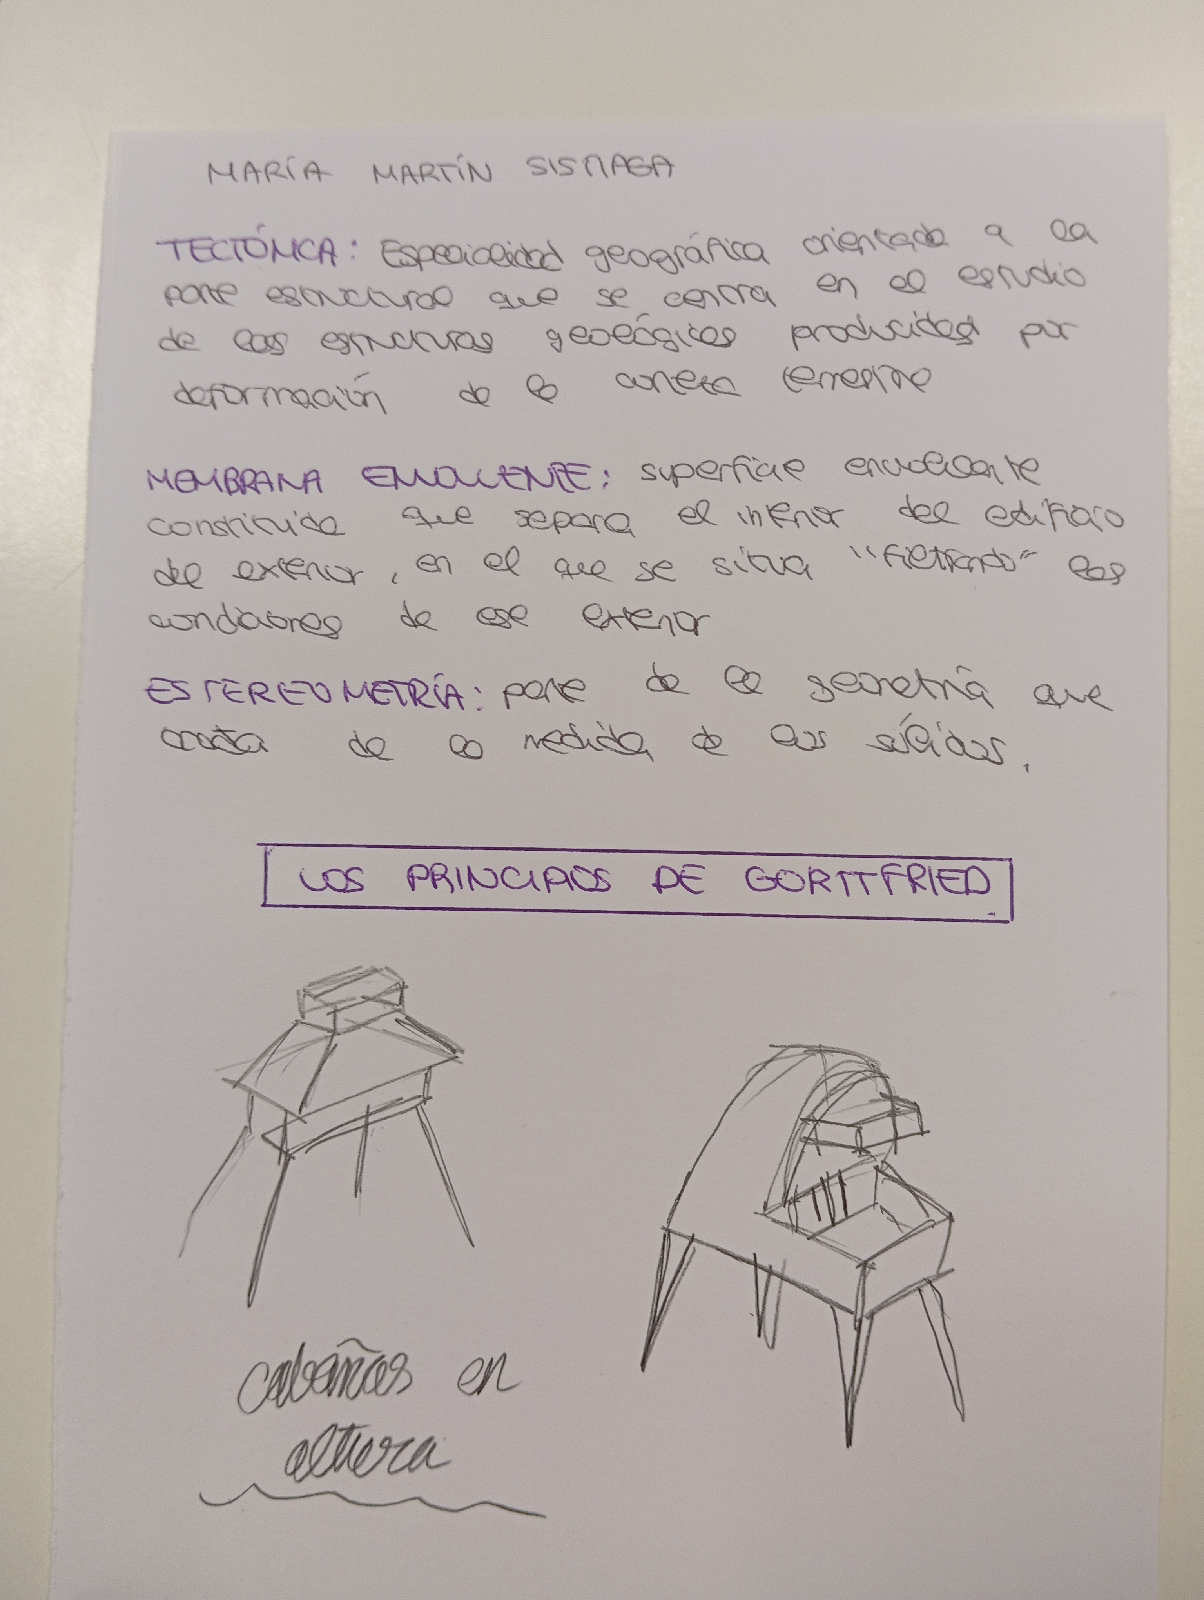 MARÍA MARTÍN SISTIAGA
TECTÓNICA: Especialidad geográfica orientada a la
parte estructural que se centra en el estudio
de las estructuras geológicas producidas por
deformación de la corteza terrestre
MEMBRANA ENVOLVENTE: superficie envolvente
constituida que separa el interior del edificio
del exterior, en el que se situa "filtrando" las
condiciones de ese exterior
ESTEREOMETRÍA: parte de la geometría que
trata de la medida de los sólidos.
LOS PRINCIPIOS DE GORTTFRIED
cabañas en
altura